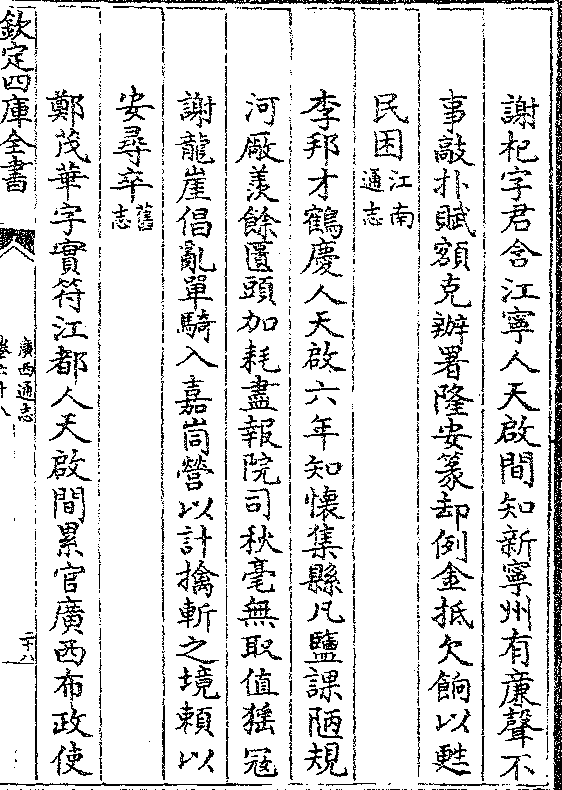 謝杞字君含江寧人天啟間知新寧州有㢘聲不
事敲扑賦額克辦署隆安篆却例金抵欠餉以甦
民困江南通志
李邦才鶴慶人天啟六年知懷集縣凡鹽課陋規
河厰羨餘匿頭加耗盡報院司秋毫無取值猺冦
謝龍崖倡亂單騎入嘉峝營以計擒斬之境頼以
安尋卒舊志
鄭茂華字實符江都人天啟間累官廣西布政使
欽定四庫全書
廣西通志
卷六十八
二十八